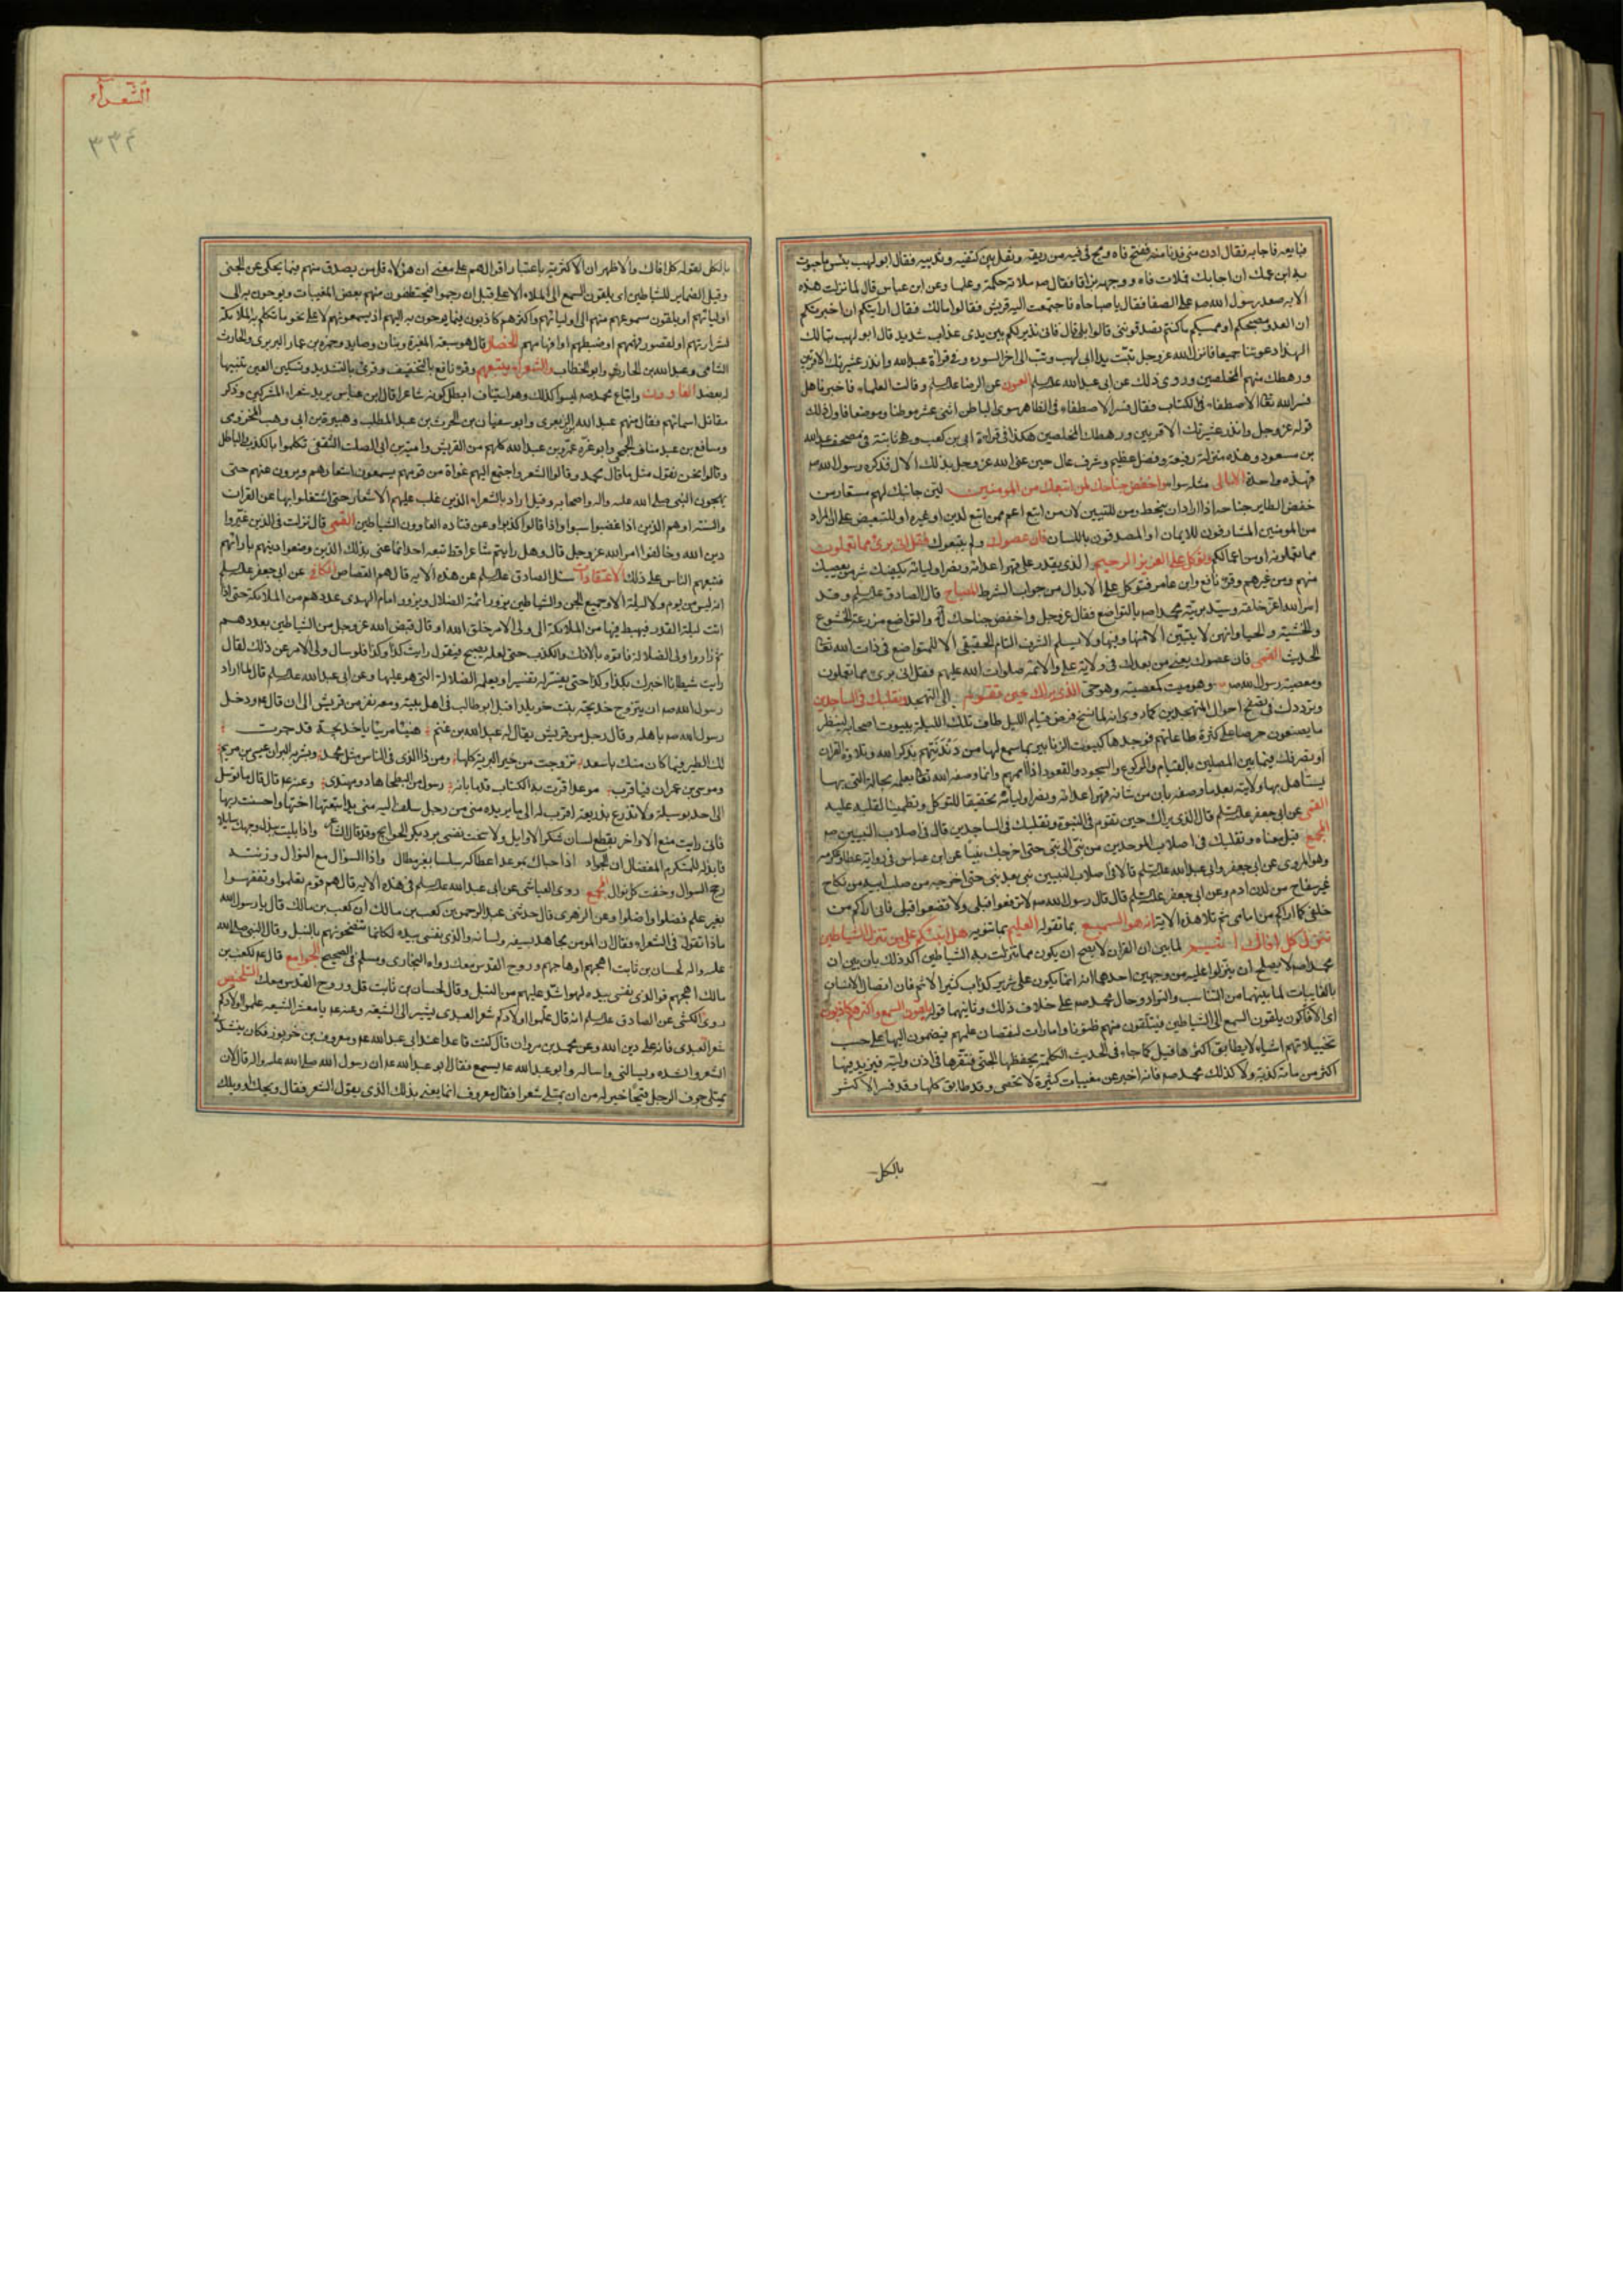 فبايعه فاجابه فقال ادن منى فدنا منه ففتح فاه ومج فى فيه من ريقه وتفل بين كتفيه وثدييه فقال ابو لهب بئس ما حبوت
به ابن عمك ان اجابك فملات فاه ووجهه بزاقا فقال صه ملاته حكمة وعلما وعن ابن عباس قال لما نزلت هذه
الايه صعد رسول الله صه على الصفا فقال يا صباحاه فاجتمعت اليه قريش فقالوا مالك فقال ارايتكم ان اخبرتكم
ان العدو مصبحكم او ممسيكم ما كنتم تصدقوننى قالوا بلى قال فانى نذير لكم بين يدى عذاب شديد قال ابو لهب تبا لك
الهذا دعوتنا جميعا فانزل الله عز وجل تبت يدا ابى لهب وتب الى اخر السوره وفى قراءة عبد الله وانذر عشيرتك الاقربين
ورهطك منهم المخلصين وروى ذلك عن ابى عبد الله عليه السلم العيون عن الرضا عليه السلم وقالت العلماء فاخبرنا هل
فسر الله تعا الاصطفاء فى الكتاب فقال فسر الاصطفاء فى الظاهر سوى الباطن اثنى عشر موطنا وموضعا فاول ذلك
قوله عز وجل وانذر عشيرتك الاقربين ورهطك المخلصين هكذا فى قراءة ابى بن كعب وهى ثابتة فى مصحف عبد الله
بن مسعود وهذه منزلة رفيعة وفضل عظيم وشرف عال حين عنى الله عز وجل بذلك الال فذكره رسول الله صه
فهذه واحدة الامالى مثله سواء واخفض جناحك لمن اتبعك من المومنين لين جانبك لهم مستعار من
خفض الطاير جناحه اذا اراد ان ينحط ومن للتبيين لان من اتبع اعم ممن اتبع لدين او غيره او للتبعيض على ان المراد
من المومنين المشارفون للايمان او المصدقون باللسان فان عصوك ولم يتبعوك فقل انى برئ مما تعملون
مما تعملونه او من اعمالكم وتوكل على العزيز الرحيم الذى يقدر على قهر اعدائه ونصر اوليائه يكفيك شر من يعصيك
منهم ومن غيرهم وقرء نافع وابن عامر فتوكل على الابدال من جواب الشرط المصباح قال الصادق عليه السلم وقد
امر الله اعز خلقه وسيد بريته محمدا صه بالتواضع فقال عز وجل واخفض جناحك الآية والتواضع مزرعة الخشوع
والخشية والحيا وانهن لا يتبين الا منها وفيها ولا يسلم الشرف التام الحقيقى الا للمتواضع فى ذات الله تعا
الحديث القمى فان عصوك يعنى من بعدك فى ولاية على والائمه صلوات الله عليهم فقل انى برئ مما تعملون
ومعصية رسول الله صه وهو ميت كمعصيته وهو حى الذى يراك حين تقوم الى التهجد وتقلبك فى الساجدين
وترددك فى تصفح احوال المتهجدين كما روى انه لما نسخ فرض قيام الليل طاف تلك الليلة ببيوت اصحابه لينظر
ما يصنعون حرصا على كثرة طاعاتهم فوجدها كبيوت الزنابير بما سمع لها من دندنتهم بذكر الله وتلاوة القران
او تصرفك فيما بين المصلين بالقيام والركوع والسجود والقعود اذا اممهم وانما وصفه الله تعا بعلمه بحاله التى بها
يستاهل بها ولايته بعد ما وصفه بان من شانه قهر اعدائه ونصر اوليائه تحقيقا للتوكل وتطمينا لقلبه عليه
القمى عن ابى جعفر عليه السلم قال الذى يراك حين تقوم فى النبوة وتقلبك فى الساجدين قال فى اصلاب النبيين صه
المجمع قيل معناه وتقلبك فى اصلاب الموحدين من نبى الى نبى حتى اخرجك نبيا عن ابن عباس فى رواية عطا وعكرمه
وهو المروى عن ابى جعفر وابى عبد الله عليه السلم قالا فى اصلاب النبيين نبى بعد نبى حتى اخرجه من صلب ابيه من نكاح
غير سفاح من لدن ادم وعن ابى جعفر عليه السلم قال قال رسول الله صه لا ترفعوا قبلى ولا تضعوا قبلى فانى اراكم من
خلفى كما اراكم من امامى ثم تلا هذه الاية انه هو السميع بما تقوله العليم بما تنويه هل انبئكم على من تنزل الشياطين
تنزل كل افاك اثيم لما بين ان القران لا يصح ان يكون مما تنزلت به الشياطين اكد ذلك بان بين ان
محمدا صه لا يصلح ان يتنزلوا عليه من وجهين احدهما انه انما يكون على شرير كذاب كثير الاثم فان اتصال الانسان
بالغايبات لما بينهما من التناسب والتواد وحال محمد صه على خلاف ذلك وثانيهما قوله يلقون السمع واكثرهم كاذبون
اى الافاكون يلقون السمع الى الشياطين فيتلقون منهم ظنونا وامارات لنقصان علمهم فيضمون اليها على حسب
تخييلاتهم اشياء لا يطابق اكثرها قيل كما جاء فى الحديث الكلمة يحفظها الجنى فتقرها فى اذن وليه فيزيد فيها
اكثر من مائة كذبة ولا كذلك محمد صه فانه اخبر عن مغيبات كثيرة لا تحصى وقد طابق كلها وقد فسر الاكثر
بالكل
الشعراء
٣٣٤
بالكل لقوله كل افاك والاظهر ان الاكثرية باعتبار اقوالهم على معنى ان هؤلاء قل من يصدق منهم فيما يحكى عن الجنى
وقيل الضماير للشياطين اى يلقون السمع الى الملاء الاعلى قبل ان رجموا فيختطفون منهم بعض المغيبات ويوحون به الى
اوليائهم او يلقون مسموعهم منهم الى اوليائهم واكثرهم كاذبون فيما يوحون به اليهم اذ يسمعونهم لا على نحو ما تكلم به الملائكة
لشرارتهم او لقصور فهمهم او ضبطهم او افهامهم الخصال قال هو سبعه المغيرة وبنان وصايد وحمزه بن عمار البربرى والحارث
الشامى وعبد الله بن الحارث وابو الخطاب والشعراء يتبعهم وقرء نافع بالتخفيف وقرئ بالتشديد وتسكين العين تشبيها
لبعضد الغاوون واتباع محمد صه ليسوا كذلك وهو استيناف ابطل كونه شاعرا قال ابن عباس يريد شعراء المشركين وذكر
مقاتل اسمائهم فقال منهم عبد الله بن الزبعرى وابو سفيان بن الحرث بن عبد المطلب وهبيرة بن ابى وهب المخزومى
ومسافع بن عبد مناف الجمحى وابو عزه عمرو بن عبد الله كلهم من القريش وامية بن ابى الصلت الثقفى تكلموا بالكذب والباطل
وقالوا نحن نقول مثل ما قال محمد وقالوا الشعر واجتمع اليهم غواة من قومهم يسمعون اشعارهم ويروون عنهم حتى
يهجون النبى صلى الله عليه واله واصحابه وقيل اراد بالشعراء الذين غلب عليهم الاشعار حتى اشتغلوا بها عن القران
والسنة او هم الذين اذا غضبوا سبوا واذا قالوا كذبوا وعن قتاده الغاوون الشياطين القمى قال نزلت فى الذين غيروا
دين الله وخالفوا امر الله عز وجل قال وهل رايتم شاعرا قط تبعه احد انما عنى بذلك الذين وضعوا دينهم بارائهم
فتبعهم الناس على ذلك الاعتقادات سئل الصادق عليه السلم عن هذه الايه قال هم القصاص الكافى عن ابى جعفر عليه السلم
انه ليس من يوم ولا ليلة الا وجميع الجن والشياطين يزور ائمة الضلال ويزور امام الهدى عددهم من الملائكة حتى اذا
اتت ليلة القدر فيهبط فيها من الملائكة الى ولى الامر خلق الله او قال قبض الله عز وجل من الشياطين بعددهم
ثم زاروا ولى الضلالة فاتوه بالافك والكذب حتى لعله يصبح فيقول رايت كذا وكذا فلو سال ولى الامر عن ذلك لقال
رايت شيطانا اخبرك بكذا وكذا حتى يفسر له تفسيرا ويعلمه الضلالة التى هو عليها وعن ابى عبد الله عليه السلم قال لما اراد
رسول الله صه ان يتزوج خديجه بنت خويلد اقبل ابو طالب فى اهل بيته ومعه نفر من قريش الى ان قال عه ودخل
رسول الله صه باهله وقال رجل من قريش يقال له عبد الله بن غنم هنيئا مريئا يا خديجة قد جرت
لك الطير فيما كان منك باسعد تزوجت من خير البرية كلها ومن ذا الذى فى الناس مثل محمد وبشر به البران عيسى بن مريم
وموسى بن عمران فيا قرب موعد اقرت به الكتاب قدما بانه رسول من البطحا هاد ومهتدى وعنه عه قال قال ما توسل
الى احد بوسيلة ولا تذرع بذريعة اقرب له الى ما يريده منى من رجل سلف اليه منى يد اتبعتها اختها واحسنت ربها
فانى رايت منع الاواخر يقطع لسان شكر الاوايل ولا سخت نفسى برد بكر الحوايج وقد قال الشاعر واذا بليت ببذل وجهك سايلا
فابذله للمتكرم المفضال ان الجواد اذا حباك بموعد اعطاكه سلسا بغير مطال واذا السؤال مع النوال وزنته
رجح السوال وخفت كل نوال المجمع روى العياشى عن ابى عبد الله عليه السلم فى هذه الايه قال هم قوم تعلموا وتفقهوا
بغير علم فضلوا واضلوا وعن الزهرى قال حدثنى عبد الرحمن بن كعب بن مالك ان كعب بن مالك قال يا رسول الله
ماذا تقول فى الشعراء فقال ان المومن مجاهد بسيفه ولسانه والذى نفسى بيده لكانما تنضحونهم بالنبل وقال النبى صلى الله
عليه واله لحسان بن ثابت اهجهم او هاجهم وروح القدس معك رواه البخارى ومسلم فى الصحيح الجوامع قال عه لكعب بن
مالك اهجهم فو الذى نفسى بيده لهو اشد عليهم من النبل وقال لحسان بن ثابت قل وروح القدس معك التلخيص
روى الكشى عن الصادق عليه السلم انه قال علموا اولادكم شعر العبدى يشير الى الشيعة وعنه عه يا معشر الشيعه علموا اولادكم
شعر العبدى فانه على دين الله وعن محمد بن مروان قال كنت قاعدا عند ابى عبد الله عه ومعروف بن خربوز فكان ينشد
الشعر وانشده ويسالنى واساله وابو عبد الله عه يسمع فقال ابو عبد الله عه ان رسول الله صلى الله عليه واله قال لان
يمتلى جوف الرجل قيحا خير له من ان يمتلى شعرا فقال معروف انما يعنى بذلك الذى يقول الشعر فقال ويحك او ويلك